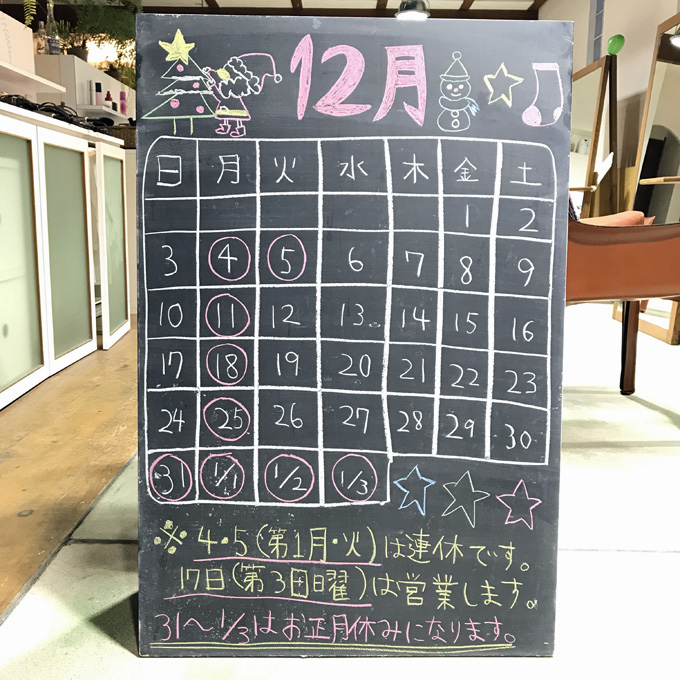 12月
日 月 火 水 木 金 土
1 2
3 4 5 6 7 8 9
10 11 12 13 14 15 16
17 18 19 20 21 22 23
24 25 26 27 28 29 30
31 1/1 1/2 1/3
※ 4・5(第1月・火)は連休です。
17日(第3日曜)は営業します。
31〜1/3はお正月休みになります。